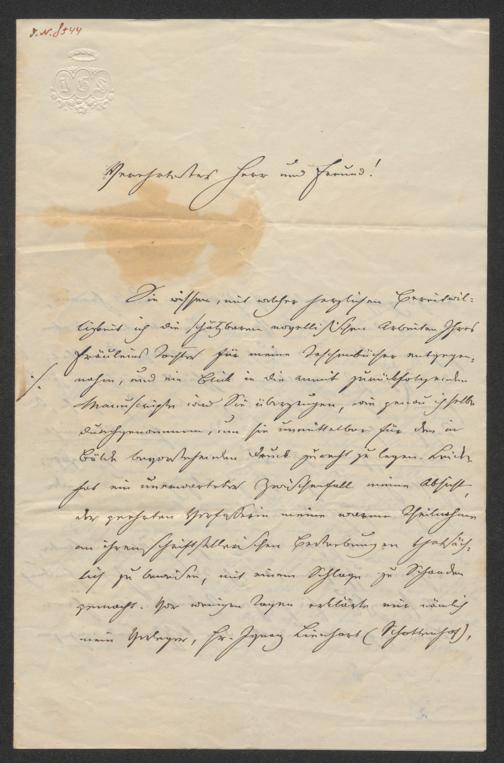 J.N. 8544
Verehrtester Herr und Freund!
Sie wissen, mit welcher herzlichen Bereitwil-
ligkeit ich die schätzbaren novellistischen Arbeiten Ihres
Fräuleins Tochter für meine Taschenbücher entgege-
nahm, und ein Blick in die anmit zurückfolgenden
Manuscripte wird Sie überzeugen, wie genau ich selbe
durchgenommen, um sie unmittelbar für den in
Bälde bevorstehenden Druck zurecht zu legen. Leider
hat ein unerwarteter Zwischenfall meine Absicht,
der geehrten Verfasserin meine warme Theilnahme
an ihren schriftstellerischen Bestrebungen thatsäch-
lich zu beweisen, mit einem Schlage zu Schanden
gemacht. Vor wenigen Tagen erklärte mir nämlich
mein Verleger, Hr. Ignaz Lienhart (Schottenhof),